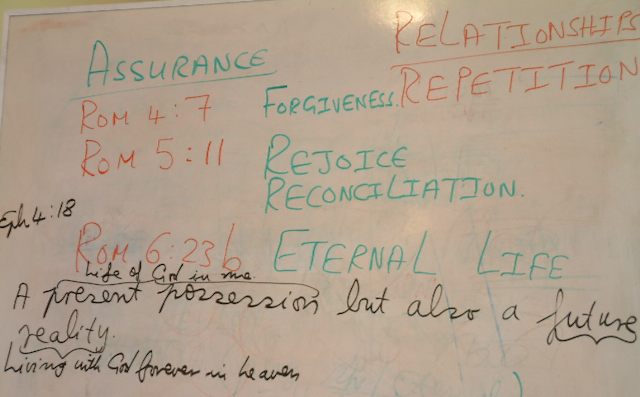 RELATIONSHIPS
REPETITION
ASSURANCE
ROM 4:7 FORGIVENESS.
ROM 5:11 REJOICE
RECONCILIATION.
Eph 4:18
ROM 6:23b ETERNAL LIFE
Life of God in me
A present possession but also a future
reality.
Living with God forever in heaven